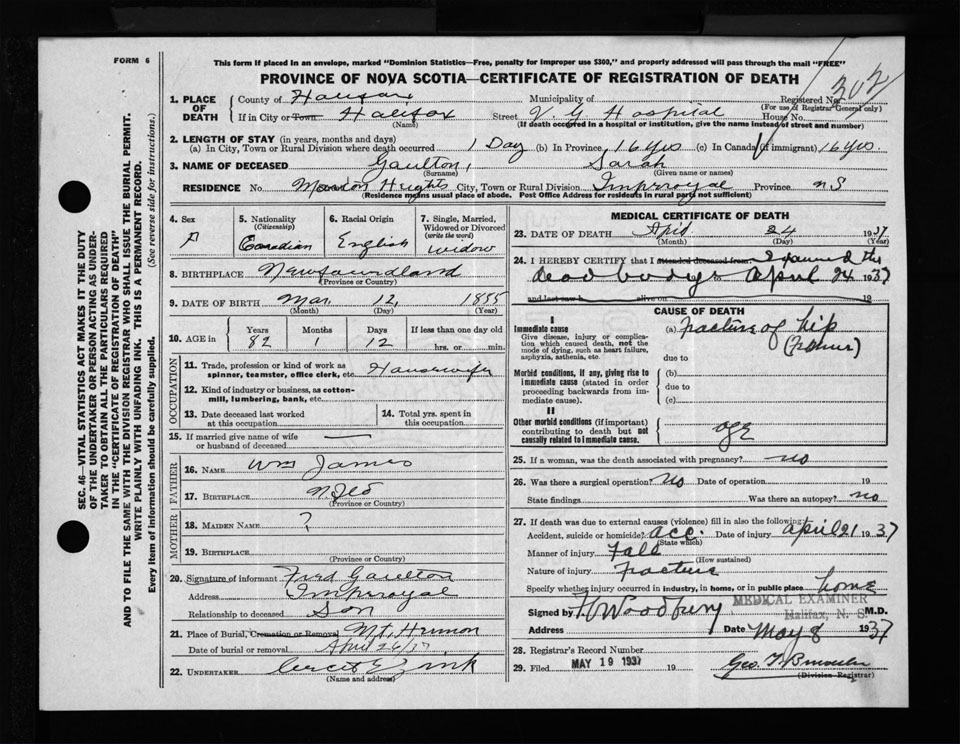 FORM 6
This form if placed in an envelope, marked "Dominion Statistics—Free, penalty for improper use $300," and properly addressed will pass through the mail "FREE"
PROVINCE OF NOVA SCOTIA—CERTIFICATE OF REGISTRATION OF DEATH
1. PLACE OF DEATH { County of Halifax Municipality of Registered No. 303
(For use of Registrar General only)
If in City or Town Halifax Street V. G Hospital House No.
(Name) (If death occurred in a hospital or institution, give the name instead of street and number)
2. LENGTH OF STAY (in years, months and days)
(a) In City, Town or Rural Division where death occurred 1 Day (b) In Province 16 Yrs (c) In Canada (if immigrant) 16 yrs.
3. NAME OF DECEASED Gaulton, Sarah
(Surname) (Given name or names)
RESIDENCE No. Heights City, Town or Rural Division Imperoyal Province N.S
(Residence means usual place of abode. Post Office Address for residents in rural parts not sufficient)
4. Sex F
5. Nationality (Citizenship) Canadian
6. Racial Origin English
7. Single, Married, Widowed or Divorced (write the word) widow
8. BIRTHPLACE Newfoundland
(Province or Country)
9. DATE OF BIRTH Mar 12, 1855
(Month) (Day) (Year)
10. AGE in { Years 82 Months 1 Days 12 If less than one day old hrs. or min.
OCCUPATION
11. Trade, profession or kind of work as spinner, teamster, office clerk, etc. Housewife
12. Kind of industry or business, as cotton-mill, lumbering, bank, etc.
13. Date deceased last worked at this occupation
14. Total yrs. spent in this occupation
15. If married give name of wife or husband of deceased —
FATHER
16. NAME Wm James
17. BIRTHPLACE Nfld
(Province or Country)
MOTHER
18. MAIDEN NAME ?
19. BIRTHPLACE
(Province or Country)
20. Signature of informant Fred Gaulton
Address Imperoyal
Relationship to deceased Son
21. Place of Burial, Cremation or Removal Mt. Hermon
Date of burial or removal April 26/37
22. UNDERTAKER Zink
(Name and address)
MEDICAL CERTIFICATE OF DEATH
23. DATE OF DEATH April 24 1937
(Month) (Day) (Year)
24. I HEREBY CERTIFY that I attended deceased from. Examined the
dead body April 24 1937
and last saw h alive on 19
CAUSE OF DEATH
I
Immediate cause
Give disease, injury or complication which caused death, not the mode of dying, such as heart failure, asphyxia, asthenia, etc.
(a) Fracture of hip
(Femur)
due to
Morbid conditions, if any, giving rise to immediate cause (stated in order proceeding backwards from immediate cause).
(b)
due to
(c)
II
Other morbid conditions (if important) contributing to death but not causally related to immediate cause.
age
25. If a woman, was the death associated with pregnancy? no
26. Was there a surgical operation? No Date of operation 19
State findings Was there an autopsy? no
27. If death was due to external causes (violence) fill in also the following:
Accident, suicide or homicide? acc. Date of injury April 21 1937
(State which)
Manner of injury Fall
(How sustained)
Nature of injury Fracture
Specify whether injury occurred in industry, in home, or in public place home
Signed by Woodbury M.D.
MEDICAL EXAMINER
Halifax, N. S.
Address Date May 8 1937
28. Registrar's Record Number
29. Filed MAY 19 1937 19
(Division Registrar)
SEC. 46—VITAL STATISTICS ACT MAKES IT THE DUTY
OF THE UNDERTAKER OR PERSON ACTING AS UNDER-
TAKER TO OBTAIN ALL THE PARTICULARS REQUIRED
IN THE "CERTIFICATE OF REGISTRATION OF DEATH"
AND TO FILE THE SAME WITH THE DIVISION REGISTRAR WHO SHALL ISSUE THE BURIAL PERMIT.
WRITE PLAINLY WITH UNFADING INK. THIS IS A PERMANENT RECORD.
Every item of information should be carefully supplied. (See reverse side for instructions.)